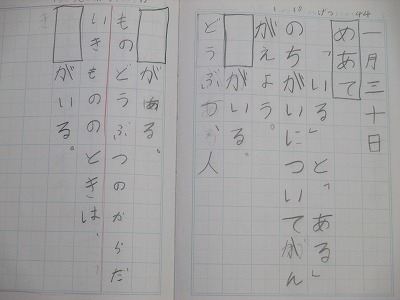 一月三十日
めあて
「いる」と「ある」
のちがいについてがん
がえよう。
がいる。
どうぶつ、人
がある。
ものどうぶつのからだ
いきもののときは、
がいる。